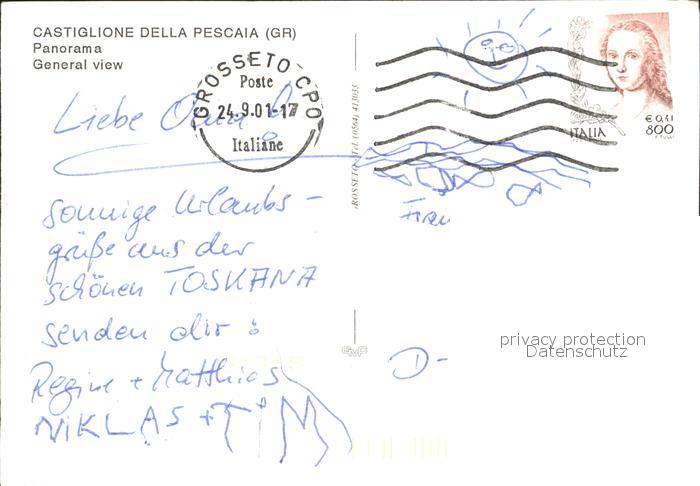 CASTIGLIONE DELLA PESCAIA (GR)
Panorama
General view
GROSSETO CPO
Poste
24.9.01-17
Italiane
ITALIA
€ 0,41
800
Liebe Oma
sonnige Urlaubs-
grüße aus der
schönen TOSKANA
senden dir :
Regine + Matthias
NiKLAS + TiM
Frau
D-
privacy protection
Datenschutz